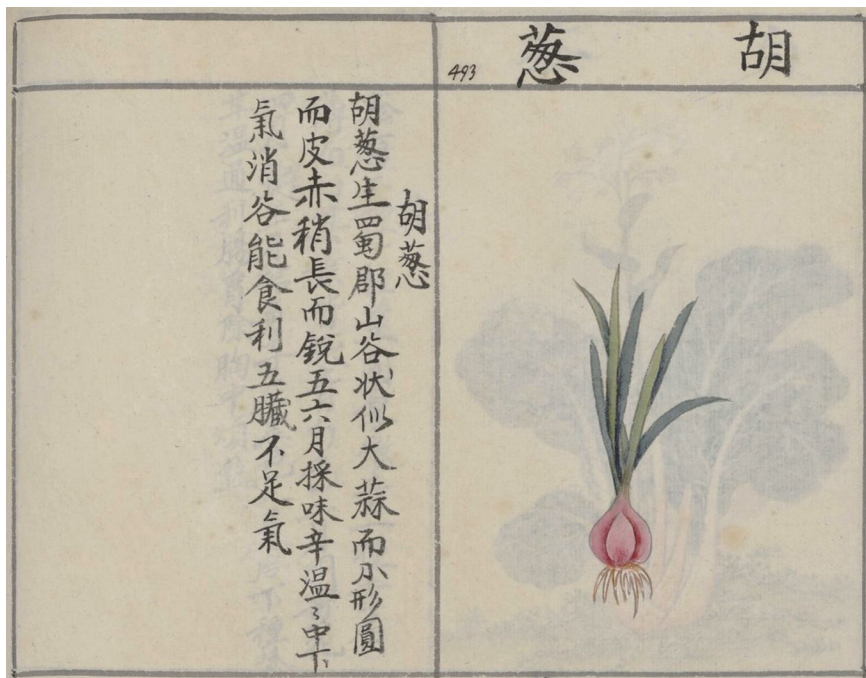 胡葱
493
胡葱
胡葱生蜀郡山谷狀似大蒜而小形圓
而皮赤稍長而銳五六月採味辛溫〻中下
氣消谷能食利五臟不足氣